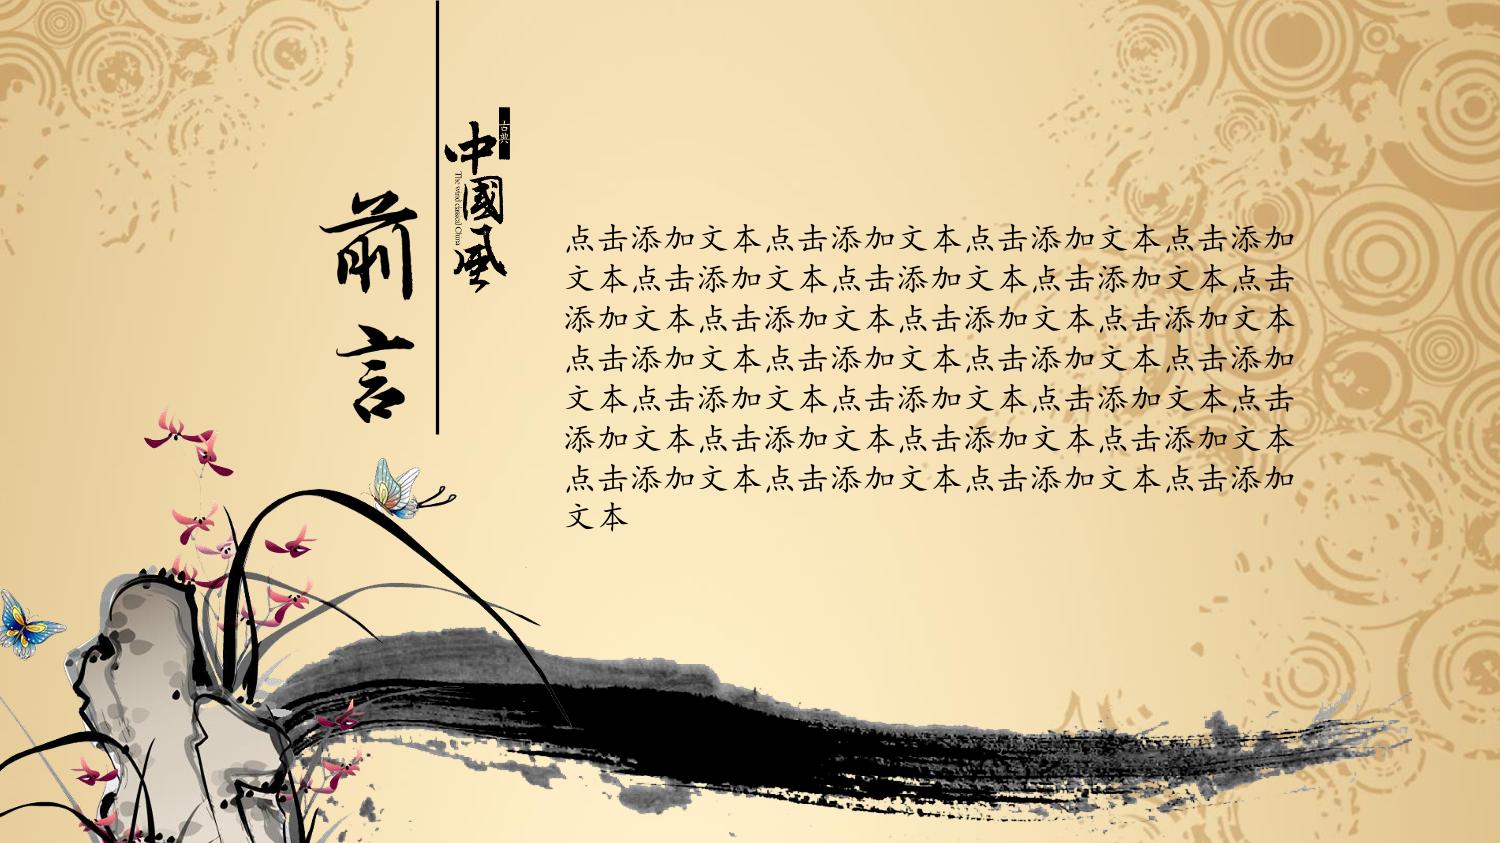 前言
古典
中國風
The wind classical China
点击添加文本点击添加文本点击添加文本点击添加
文本点击添加文本点击添加文本点击添加文本点击
添加文本点击添加文本点击添加文本点击添加文本
点击添加文本点击添加文本点击添加文本点击添加
文本点击添加文本点击添加文本点击添加文本点击
添加文本点击添加文本点击添加文本点击添加文本
点击添加文本点击添加文本点击添加文本点击添加
文本